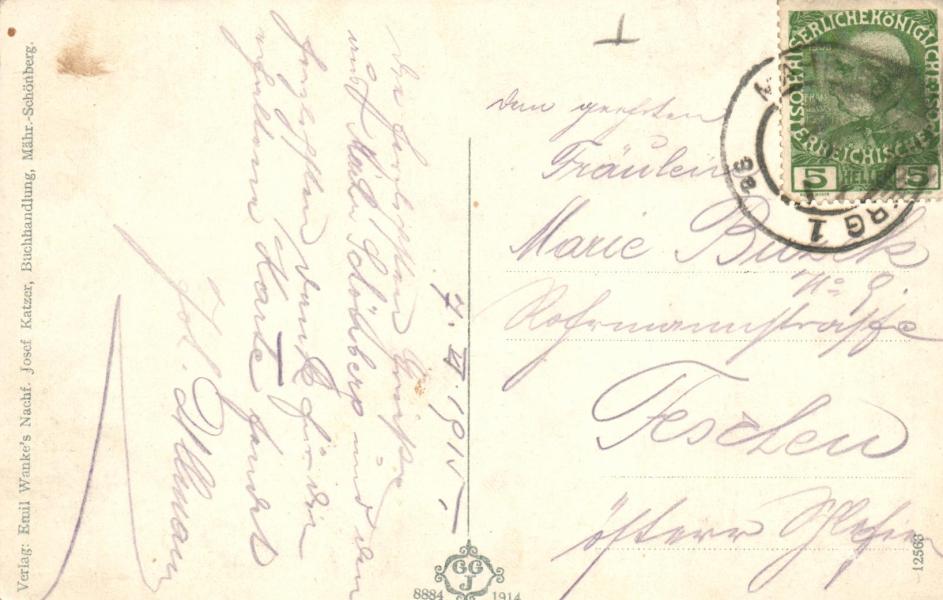 Verlag: Emil Wanke's Nachf. Josef Katzer, Buchhandlung, Mähr.-Schönberg.
7. VI. 1915.
Die herzlichsten Grüße
aus Mähr. Schönberg und den
herzlichsten Dank für die
erhaltene Karte sendet
Jos.
Dem geehrten
Fräulein
Marie
No 9.
Rohrmannstraße
Teschen
österr Schlesien
KAISERLICHEKÖNIGLICHE
ÖSTERREICHISCHE
5 HELLER 5
RG 1
9a
GG
J
8884 1914
12563